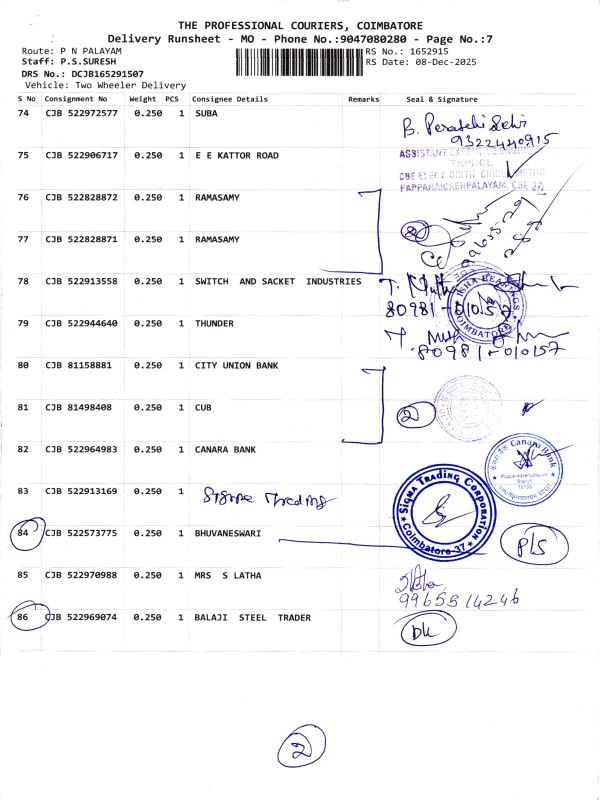 THE PROFESSIONAL COURIERS, COIMBATORE
Delivery Runsheet - MO - Phone No.:9047080280 - Page No.:7
Route: P N PALAYAM
RS No.: 1652915
Staff: P.S.SURESH
RS Date: 08-Dec-2025
DRS No.: DCJB165291507
Vehicle: Two Wheeler Delivery
S No Consignment No Weight PCS Consignee Details Remarks Seal & Signature
74 CJB 522972577 0.250 1 SUBA
9322440915
75 CJB 522906717 0.250 1 E E KATTOR ROAD
ASSISTANT
CBE ELECY DISTN. CIRCLE METRO
PAPPANAICKENPALAYAM, CBE-37
76 CJB 522828872 0.250 1 RAMASAMY
77 CJB 522828871 0.250 1 RAMASAMY
78 CJB 522913558 0.250 1 SWITCH AND SACKET INDUSTRIES
ISHA BEARINGS
COIMBATORE
80981-01057
79 CJB 522944640 0.250 1 THUNDER
80981-010157
80 CJB 81158881 0.250 1 CITY UNION BANK
81 CJB 81498408 0.250 1 CUB
2
82 CJB 522964983 0.250 1 CANARA BANK
Canara Bank
Branch
83 CJB 522913169 0.250 1 Sigma Trading
SIGMA TRADING CORPORATION
Coimbatore-37
84 CJB 522573775 0.250 1 BHUVANESWARI
P/S
85 CJB 522970988 0.250 1 MRS S LATHA
9965514246
86 CJB 522969074 0.250 1 BALAJI STEEL TRADER
DK
2